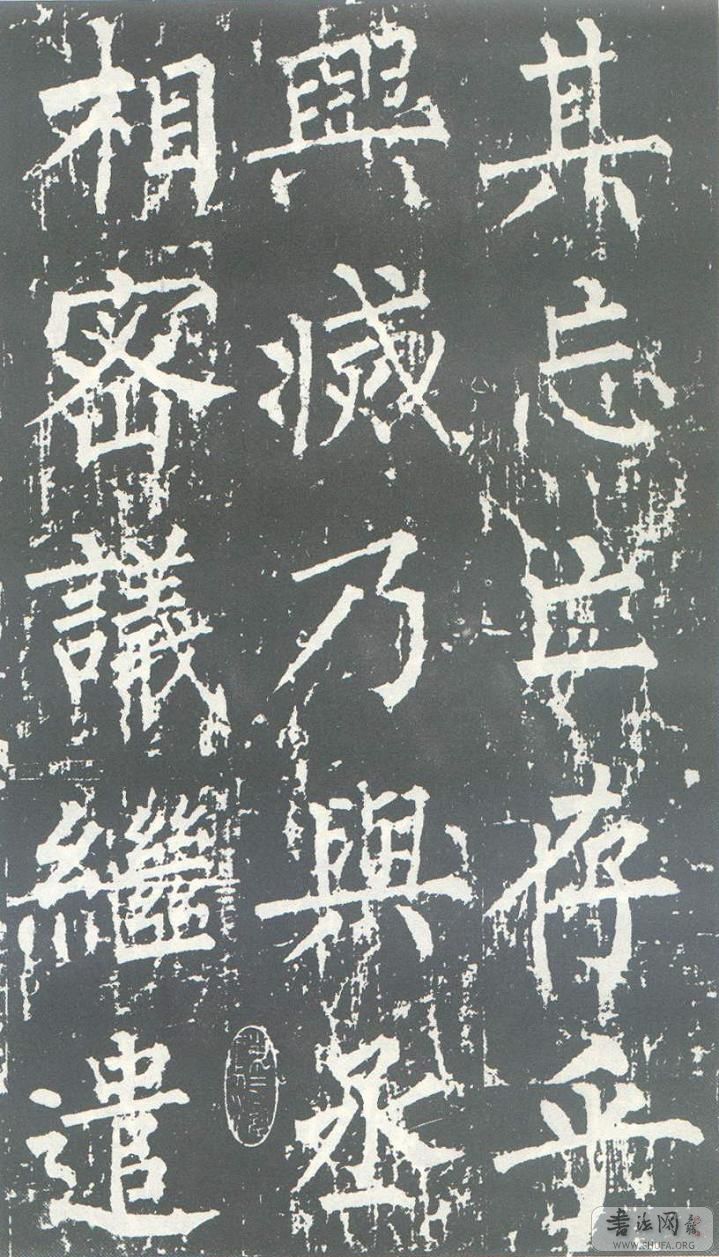 其忘亡存乎
興滅乃與丞
相密議繼遣
書法网
WWW.SHUFA.ORG